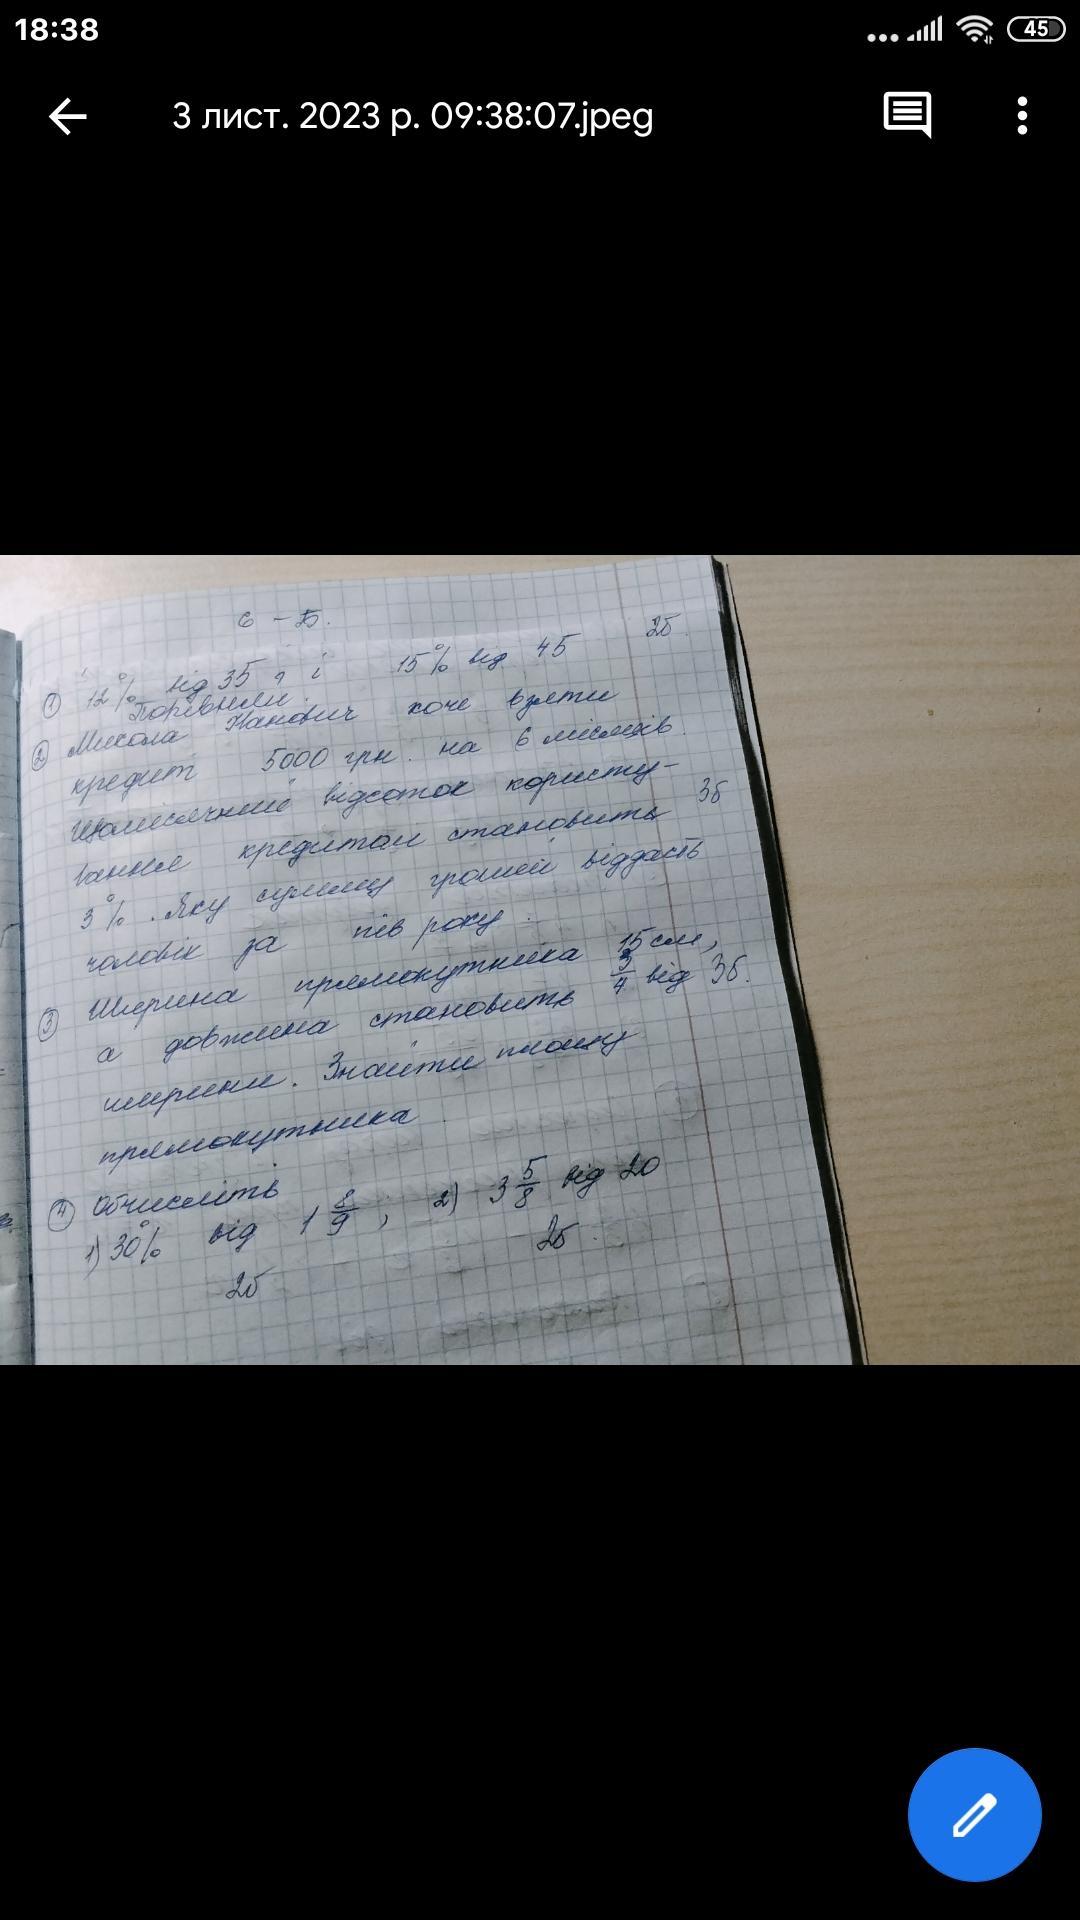 18:38
45
3 лист. 2023 р. 09:38:07.jpeg
6 - Б.
① 12% від 35 і 15% від 45 2б.
Порівняли
② Микола Іванович хоче взяти
кредит 5000 грн. на 6 місяців.
Щомісячний відсоток користу-
вання кредитом становить 3б
3%. Яку сумму грошей віддасть
чоловік за пів року.
③ Ширина прямокутника 15 см,
а довжина становить 3/4 від 3б.
ширини. Знайти площу
прямокутника
④ Обчисліть
1) 30% від 1 8/9; 2) 3 5/8 від 20
2б 2б.